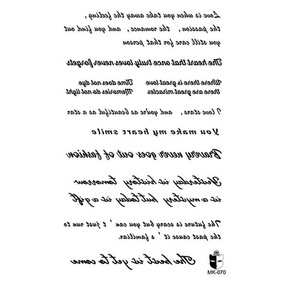 Love is when you take away the feeling,
the passion, the romance, and you find out
you still care for that person
The heart that once truly loves never forgets
Where there is great love
there are great miracles
Time does not dye
Memories do light not to
I love stars, and you're as beautiful as a star
You make my heart smile
Bravery never goes out of fashion
Yesterday is history tomorrow
is a mystery but today is a gift
The future is scary but you can't just run to
the past cause it's familiar.
The best is yet to come
MK-070